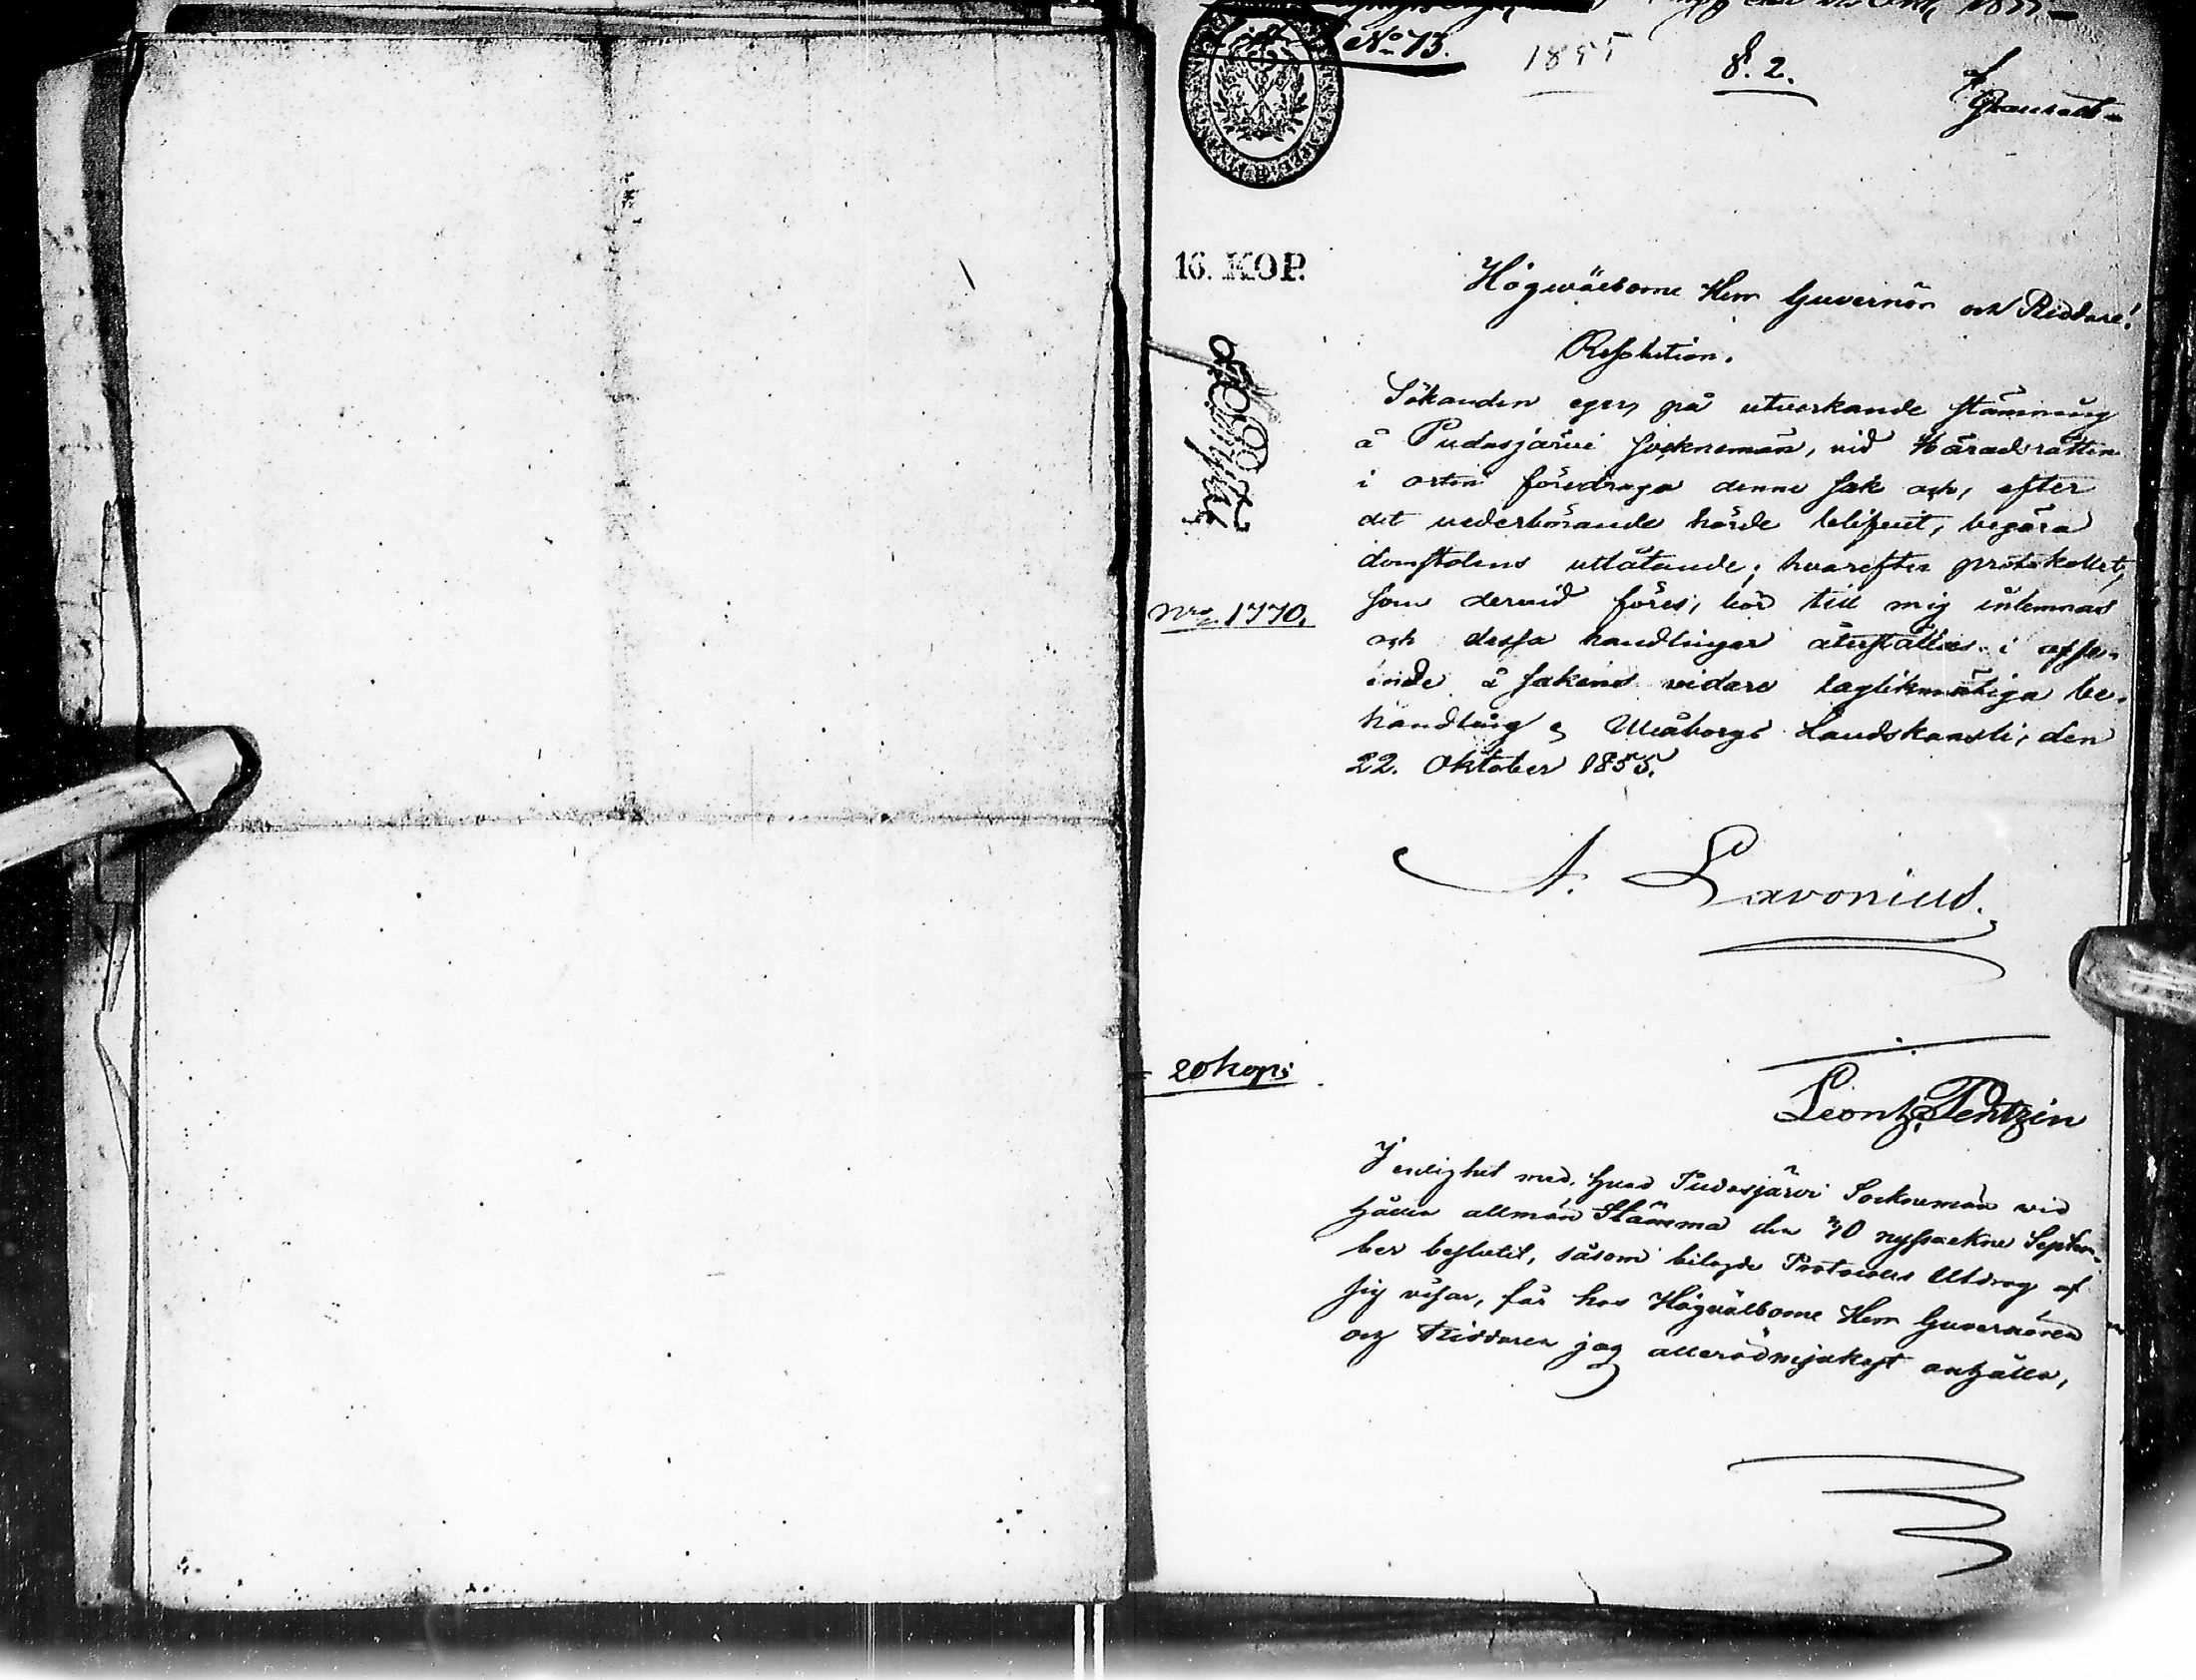 No 73.
1855
§. 2.
16. KOP.
Högwälborne Herr Guvernör och Riddare!
Resolution.
Sökanden eger, på utverkande stämning
å Pudasjärvi sockneman, vid Häradsrätten
i orten föredraga denne sak och, efter
det vederbörande hörde blifvit, begära
domstolens utlåtande; hvarefter protokollet,
No 1770.
som dervid föres, bör till mig inlemnas
och dessa handlingar återställas i afse-
ende å sakens vidare laglikmätiga be-
handling. Uleåborgs Landskansli, den
22. Oktober 1855.
A. Lavonius.
20 kop:
Leontz. Pentzin
I enlighet med hvad Pudasjärvi Socknemän vid
hållen allmän Stämma den 30 nyssvekne Septem-
ber beslutit, såsom bilagde Protocolls Utdrag af
sig visar, får hos Högwälborne Herr Guvernören
och Riddaren jag allerödmjukast anhålla,